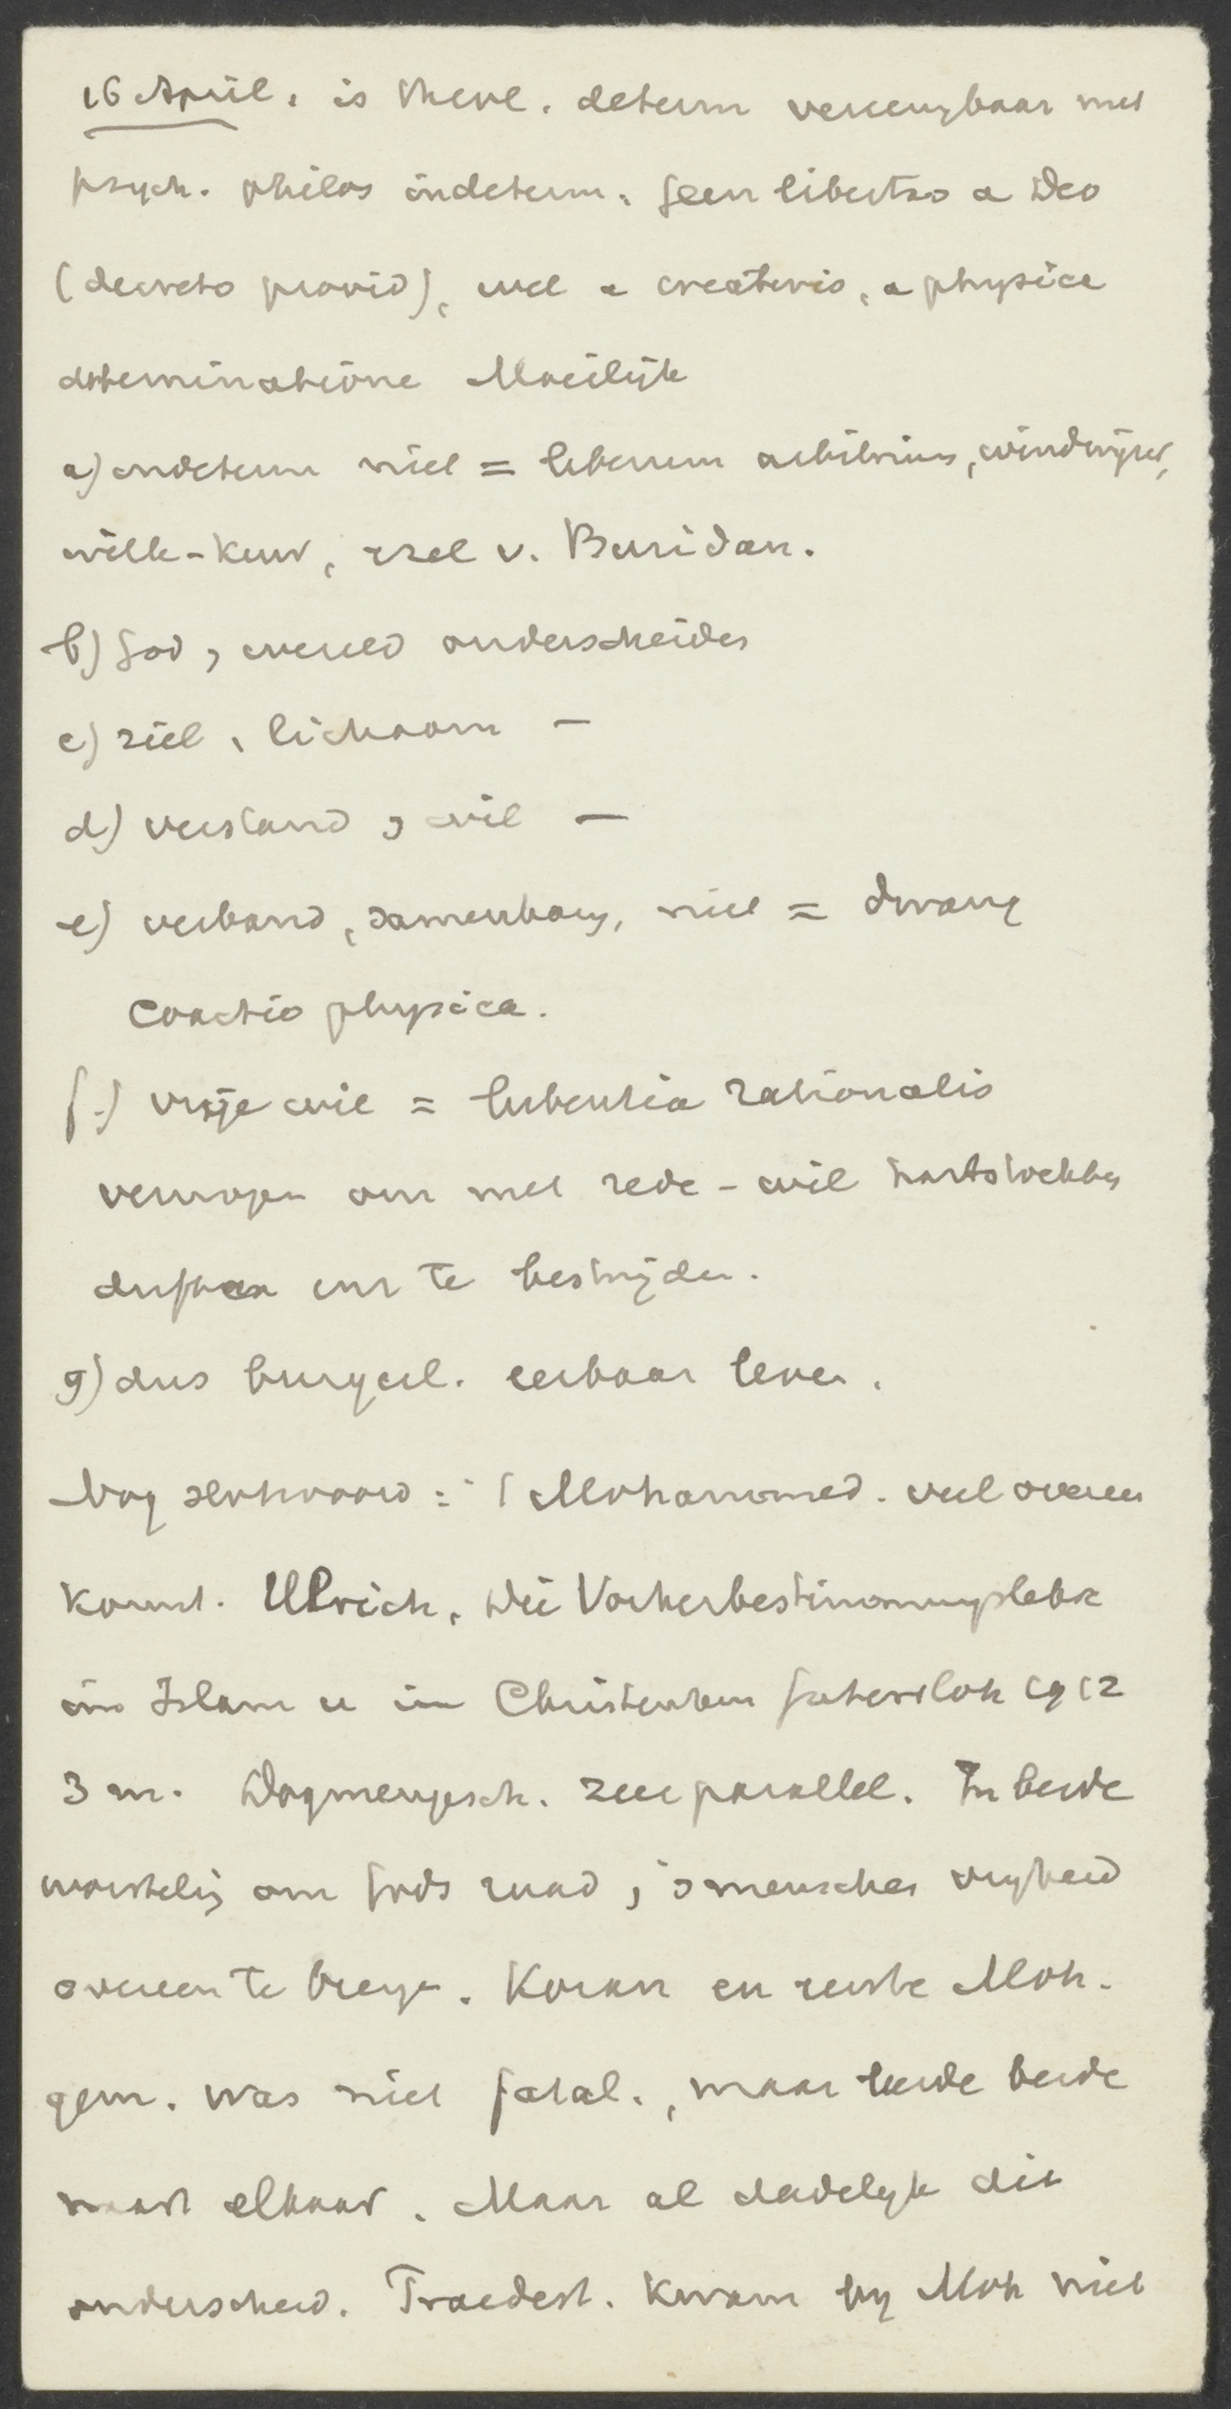 16 April. is theol. determ vereenigbaar met
psych. philos indeterm. geen libertas a Deo
(decreto provid), wel a creaturis, a physica
determinatione Moeilijk
a) indeterm niet = liberum arbitrium, windwijzer,
wille-keur, ezel v. Buridan.
b) God, wereld onderscheiden
c) ziel, lichaam —
d) verstand, wil —
e) verband, samenhang, niet = dwang
coactio physica.
f.) vrije wil = lubentia rationalis
vermogen om met rede - wil hartstochten
driften enz te bestrijden.
g) dus burgerl. eerbaar leven.
Nog slotwoord: Mohammed. veel overeen
komst. Ulrich, Die Vorherbestimmungslehre
im Islam u im Christentum Gütersloh 1912
3 m. Dogmengesch. zeer parallel. In beide
worsteling om Gods raad, 's menschen vrijheid
overeen te breng. Koran en eerste Moh.
gem. was niet fatal., maar leerde beide
naast elkaar. Maar al dadelijk dit
onderscheid. Praedest. kwam bij Moh niet